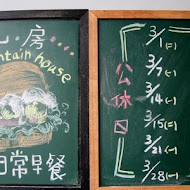 房
ntain house
日常早餐
公休日
3/1(一)
3/7(一)
3/14(一)
3/15(二)
3/21(一)
3/28(一)